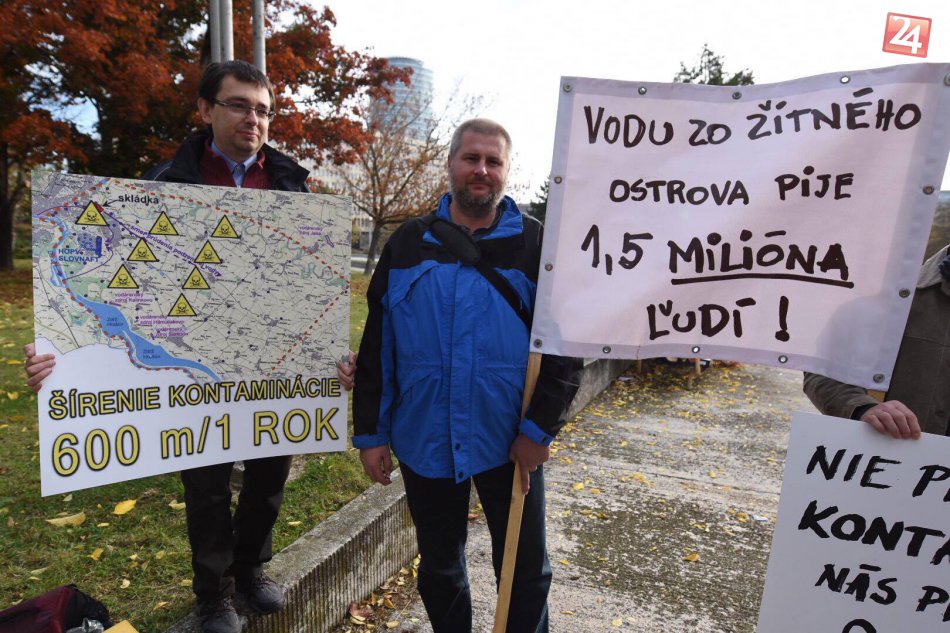 24
skládka
SLOVNAFT
ŠÍRENIE KONTAMINÁCIE
600 m/1 ROK
VODU ZO ŽÍTNÉHO
OSTROVA PIJE
1,5 MILIÓNA
ĽUDÍ!
NIE
KONTA
NÁS